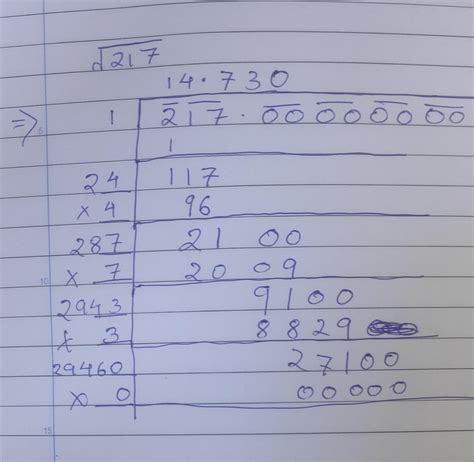 √217
14.730
⇒ 1 217.00 00 00 00
1
24 117
x 4 96
287 21 00
x 7 20 09
2943 9100
x 3 8829
29460 27100
x 0 00000